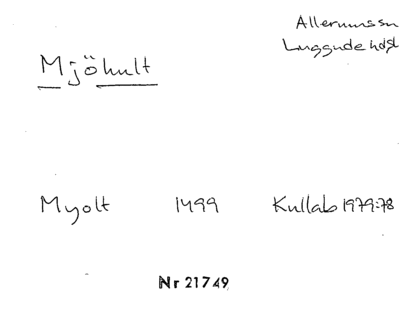 Allerums sn
Luggude hd sk
Mjöhult
Myolt 1499 Kullab 1979:78
Nr 21749